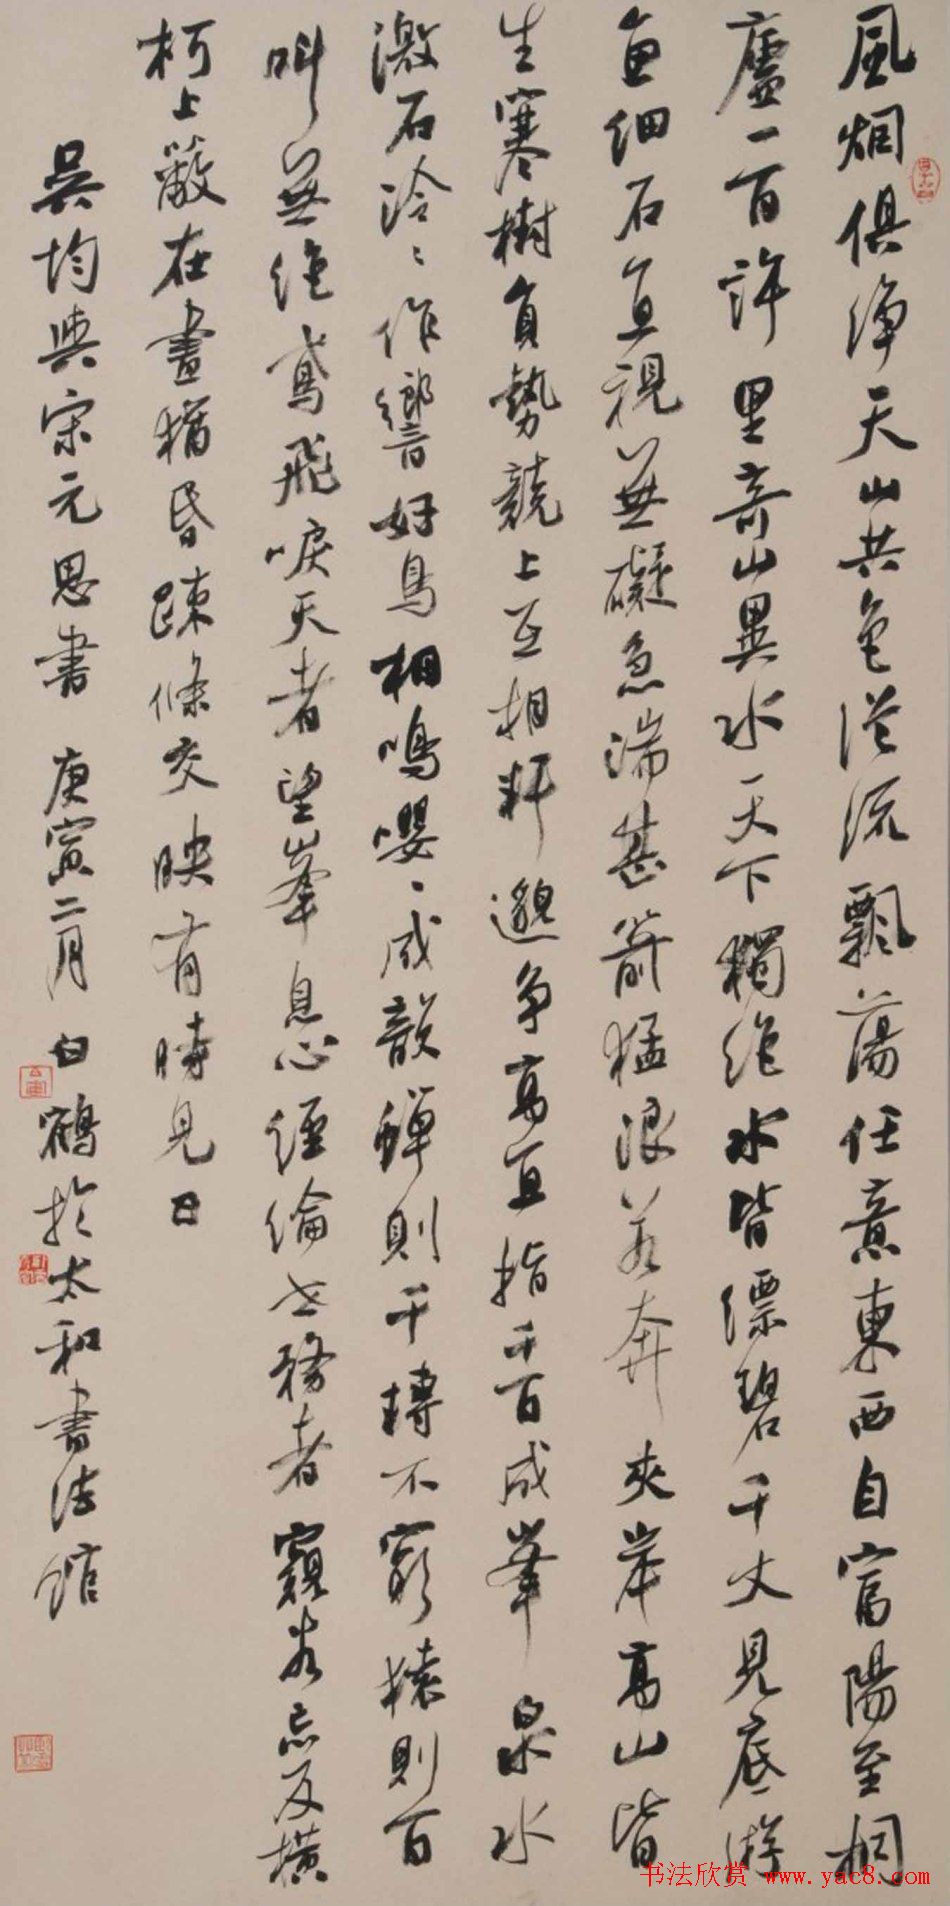 風烟俱淨天山共色從流飄蕩任意東西自富陽至桐
廬一百許里奇山異水天下獨絶水皆縹碧千丈見底游
魚細石直視無礙急湍甚箭猛浪若奔夾岸高山皆
生寒樹負勢競上互相軒邈爭高直指千百成峯泉水
激石泠〻作響好鳥相鳴嚶〻成韻蟬則千轉不窮猿則百
叫無絶鳶飛唳天者望峯息心經綸世務者窺谷忘反橫
柯上蔽在晝猶昏疎條交映有時見日
吳均與宋元思書 庚寅二月 白鶴於太和書法館
书法欣赏 www.yac8.com